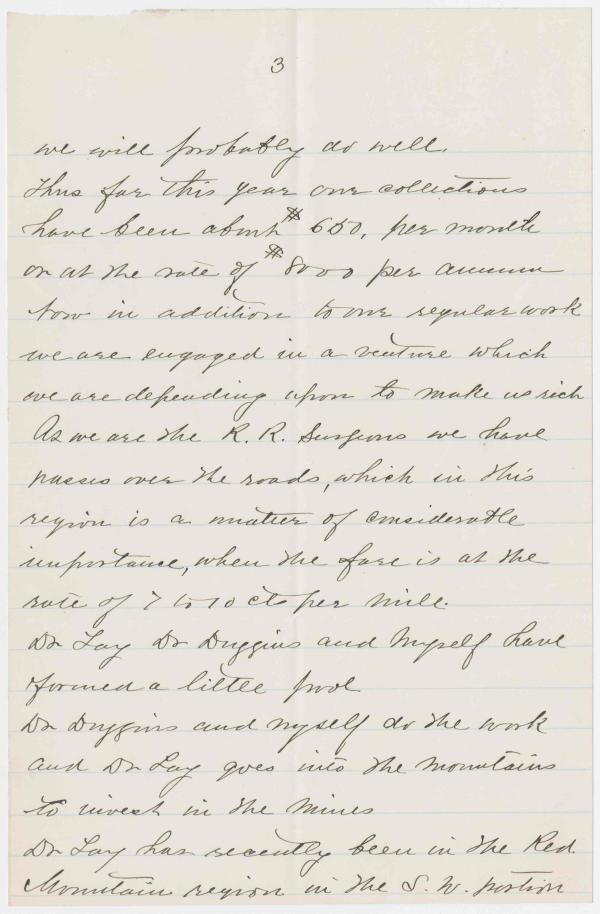 3
we will probably do well.
Thus far this year our collections
have been about $650, per month
or at the rate of $8000 per annum
Now in addition to our regular work
we are engaged in a venture which
we are depending upon to make us rich
As we are the R. R. Surgeons we have
passes over the roads, which in this
region is a matter of considerable
importance, when the fare is at the
rate of 7 to 10 cts per mile.
Dr Lay Dr Duggins and Myself have
formed a little pool
Dr Duggins and myself do the work
and Dr Lay goes into the Mountains
to invest in the Mines
Dr Lay has recently been in the Red
Mountain region in the S. W. portion